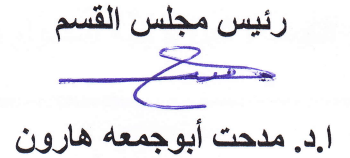 رئيس مجلس القسم
ا.د. مدحت أبوجمعه هارون